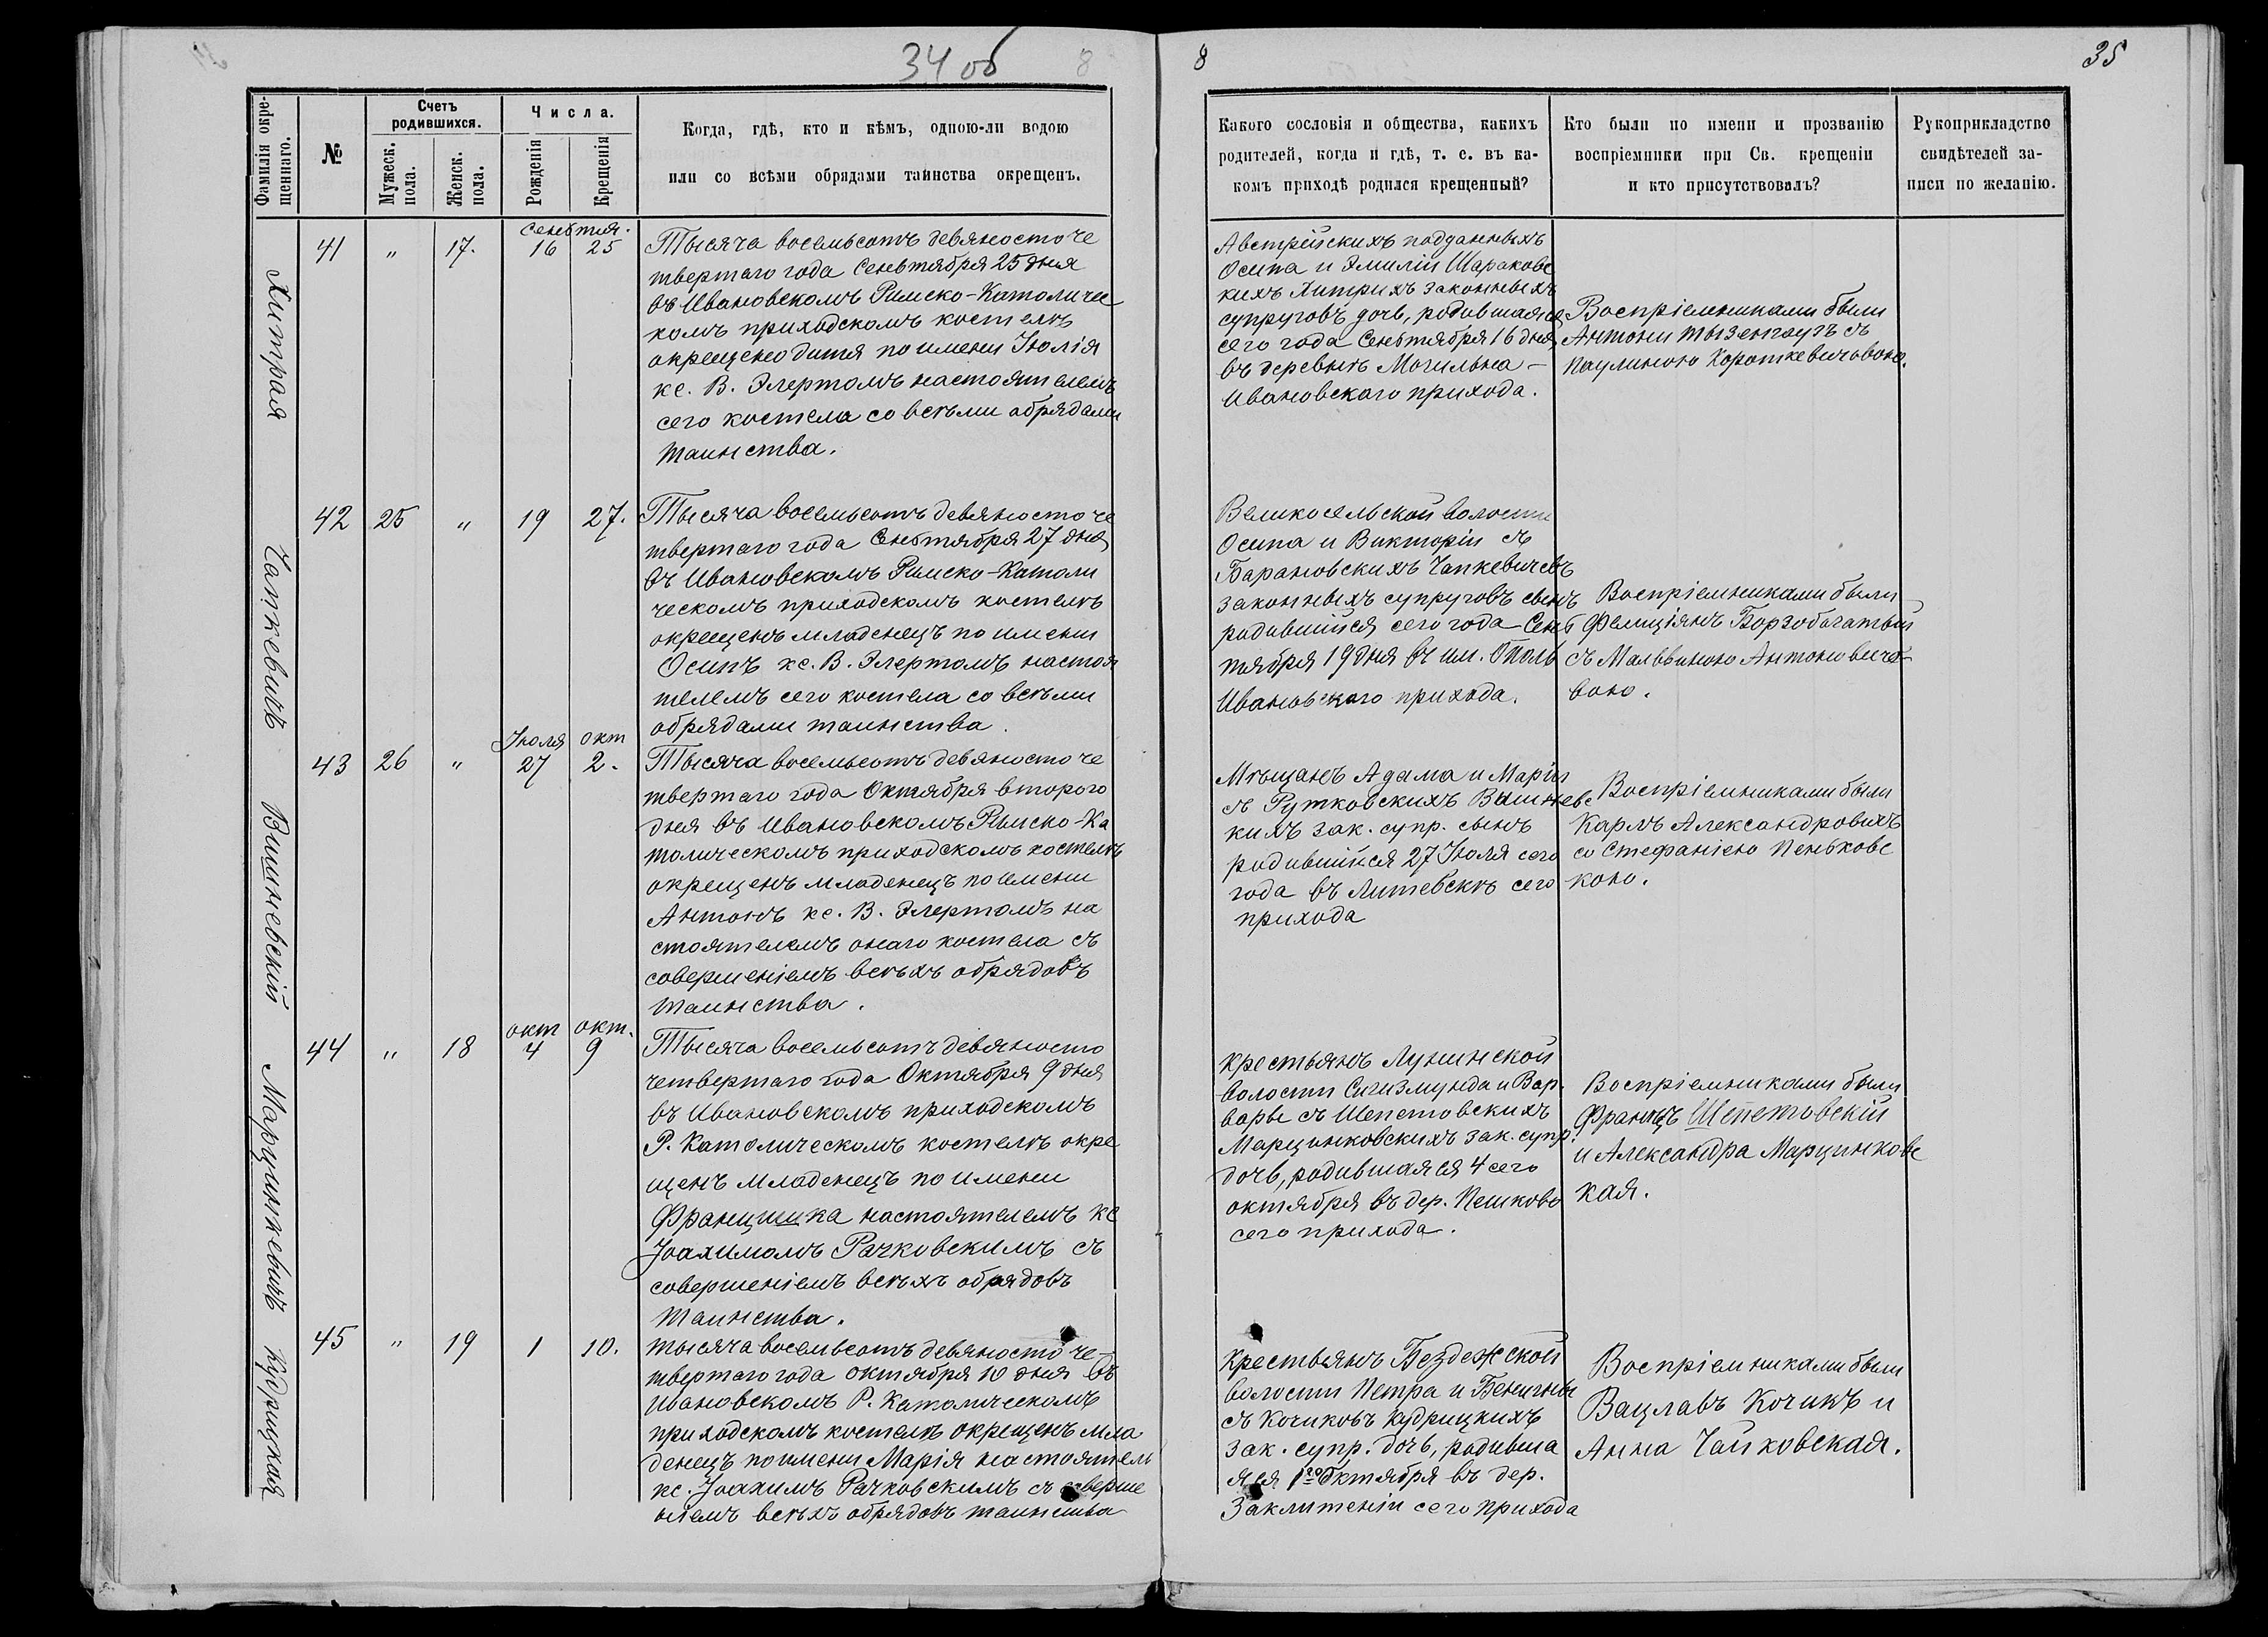 34 об
8
8
35
Фамилія окрещеннаго.
№
Счетъ родившихся.
Мужеск. пола.
Женск. пола.
Числа.
Рожденія
Крещенія
Когда, гдѣ, кто и кѣмъ, одною-ли водою
или со всѣми обрядами таинства окрещенъ.
Какого сословія и общества, какихъ
родителей, когда и гдѣ, т. е. въ ка-
комъ приходѣ родился крещенный?
Кто были по имени и прозванію
воспріемники при Св. крещеніи
и кто присутствовалъ?
Рукоприкладство
свидѣтелей за-
писи по желанію.
Хитрая
41 " 17. 16 25
Тысяча восемьсотъ девяносто че
твертаго года Сеньтября 25 дня
въ Ивановскомъ Римско-Католичес
комъ приходскомъ костелѣ
окрещено дитя по имени Юлія
кс. В. Элертомъ настоятелемъ
сего костела со всѣми обрядами
таинства.
Австрійскихъ подданныхъ
Осипа и Эмиліи Шараковс
кихъ Хитрихъ законныхъ
супруговъ дочь, родившаяся
сего года Сеньтября 16 дня
въ деревнѣ Могильна –
Ивановскаго прихода.
Воспріемниками были
Антони Тызенгаузъ съ
Паулиною Короткевичовою.
Чапкевичъ
42 25 " 19 27.
Тысяча восемьсотъ девяносто че
твертаго года Сеньтября 27 дня
въ Ивановскомъ Римско-Католи
ческомъ приходскомъ костелѣ
окрещенъ младенецъ по имени
Осипъ кс. В. Элертомъ настоя
телемъ сего костела со всѣми
обрядами таинства.
Великосельской волости
Осипа и Викторіи съ
Барановскихъ Чапкевичевъ
законныхъ супруговъ сынъ
родившійся сего года Сень
тября 19 дня въ им. Ополь
Ивановскаго прихода.
Воспріемниками были
Фелиціянъ Борзобогатый
съ Мальвиною Антоновичо-
вою.
Вишневскій
Іюля окт
43 26 " 27 2.
Тысяча восемьсотъ девяносто че
твертаго года Октября второго
дня въ Ивановскомъ Римско-Ка
толическомъ приходскомъ костелѣ
окрещенъ младенецъ по имени
Антонъ кс. В. Элертомъ на
стоятелемъ онаго костела съ
совершеніемъ всѣхъ обрядовъ
таинства.
Мѣщанъ Адама и Маріи
съ Рутковскихъ Вишневс
кихъ зак. супр. сынъ
родившійся 27 Іюля сего
года въ Литевскѣ сего
прихода
Воспріемниками были
Карлъ Александровичъ
со Стефаніею Пеньковс
кою.
Марцинкевичъ
окт окт.
44 " 18 4 9
Тысяча восемьсотъ девяносто
четвертаго года Октября 9 дня
въ Ивановскомъ приходскомъ
Р. Католическомъ костелѣ окре
щенъ младенецъ по имени
Францишка настоятелемъ кс
Іоахимомъ Рачковскимъ съ
совершеніемъ всѣхъ обрядовъ
таинства.
Крестьянъ Лунинской
волости Сигизмунда и Вар
вары съ Шепетовскихъ
Марцинковскихъ зак. супр.
дочь, родившаяся 4 сего
октября въ дер. Пешково
сего прихода.
Воспріемниками были
Францъ Шепетовскій
и Александра Марцинковс
кая.
Кудрицкая
45 " 19 1 10.
тысяча восемьсотъ девяносто че-
твертаго года октября 10 дня въ
Ивановскомъ Р. Католическомъ
приходскомъ костелѣ окрещенъ мла
денецъ по имени Марія настоятель
кс. Іоахимъ Рачковскимъ съ соверше
ніемъ всѣхъ обрядовъ таинства
Крестьянъ Бездежской
волости Петра и Бенигны
съ Кочиковъ Кудрицкихъ
зак. супр. дочь, родивша
яся 1го Октября въ дер.
Заклитеніи сего прихода
Воспріемниками были
Вацлавъ Кочикъ и
Анна Чайковская.